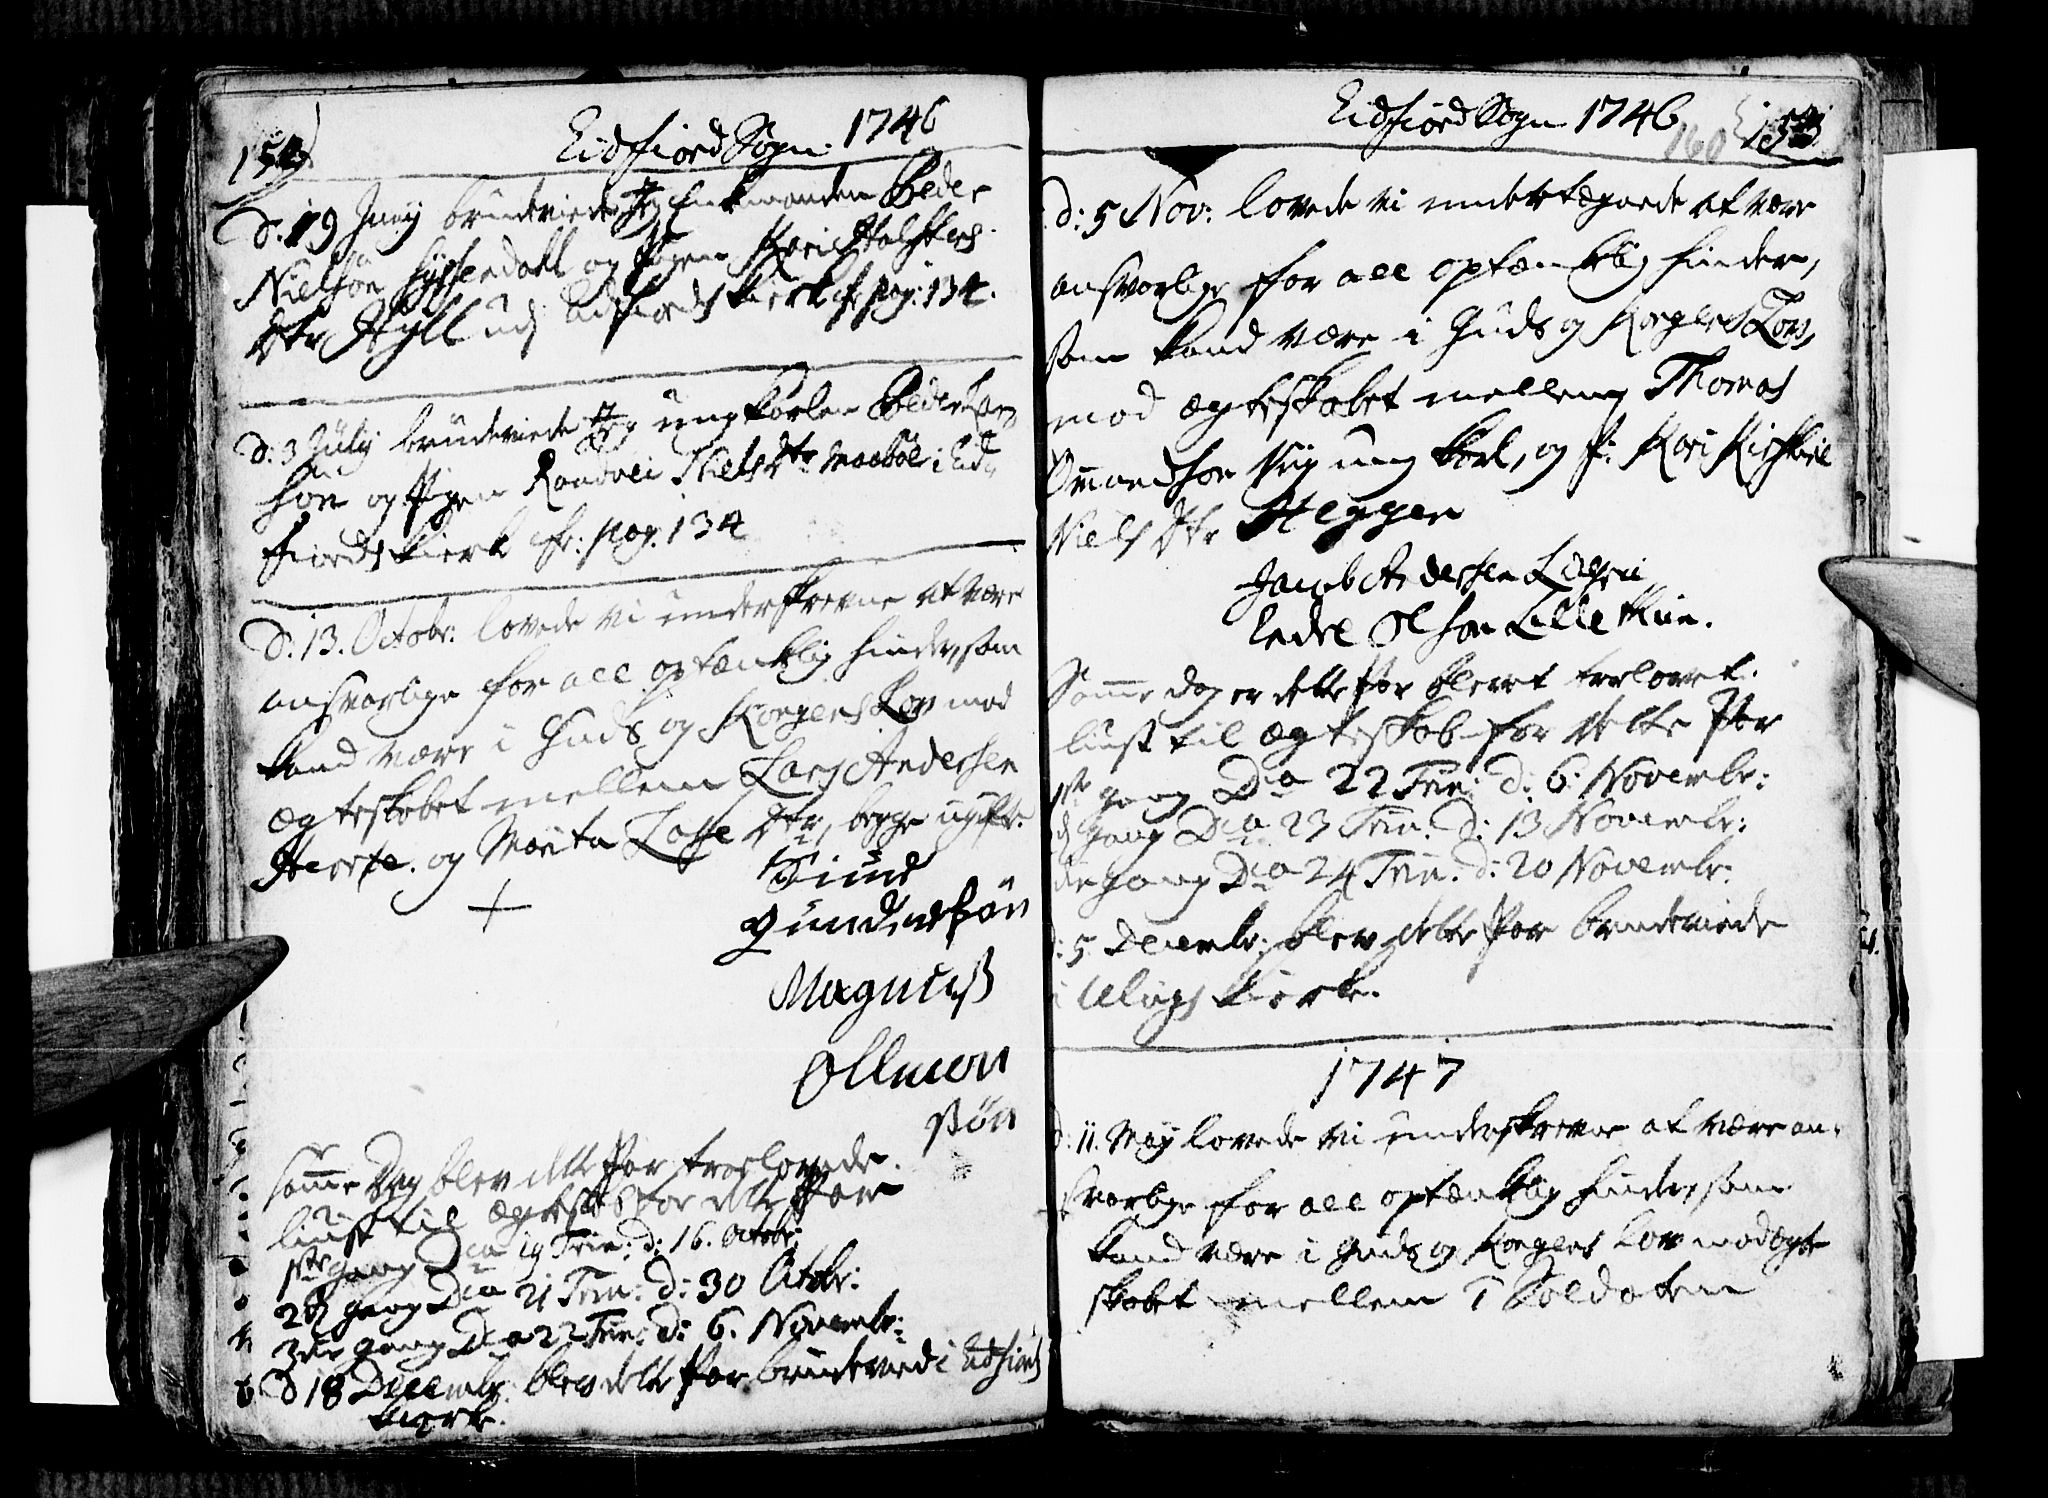 Eidfiord Sogn. 1746
d: 19 Junij brudeviede Jeg Enkemanden Peder
Nielsøn Hysendahl og Pigen Kari Halsteens
Dtr Hyll udj Eidfiords Kierk cfr pag: 134.
d: 3 Julij brudeviede Jeg ungkarlen Peder
søn og Pigen Randvei Niels Dtr Maabøe i Eid-
fiords Kierk cfr: pag. 134
D: 13. Octobr: lovede vi underskrevne at være
ansvarlige for all optænklig hinder, som
kand være i Guds og Kongens Lov mod
Ægteskabet mellem Lars Andersen
og Marita Dtr, begge ugifte.
Siur
Gundersøn
Magnuss
Ollmon
søn
samme Dag blev dette Par troelovede.
liust til Ægteskab for dette Par
1ste gang Dca 19 Trin: d: 16. Octobr:
2d gang Dca 21 Trin: d: 30 Octbr:
3die gang Dca 22 Trin: d: 6. Novembr:
D 18 Decembr: blev dette Par brudeviede i Eidfiords
kierke.
Eidfiord Sogn 1746
160
d: 5 Nov: lovede vi undertegnede at være
ansvarlige for all optænklig hinder,
som kand være i Guds og Kongens Lov,
mod Ægteskabet mellem Thomas
Omundsøn Viig ung karl, og P: Kari
Niels Dtr Heggen
Jacob Andersen
Endre Olson Lille
Samme dag er dette Par blevet trolovet.
liust til Ægteskab for dette Par
1ste gang Dca 22 Trin: d: 6: Novembr:
gang Dca 23 Trin: d: 13 Novembr:
die gang Dca 24 Trin. d: 20 Novembr:
d: 5 Decembr: blev dette Par brudeviede
i Ulvigs Kierke.
1747
d: 11. Maij lovede vi underskrevne at være an-
svarlige for all optænklig hinder, som
kand være i Guds og Kongens Lov mod Ægte
skabet mellem Soldaten